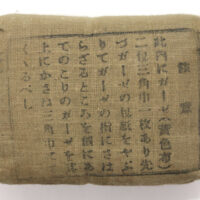 注意
此内にガーゼ(黄色布)
二包三角巾一枚あり先
づガーゼの包紙をやぶ
りてガーゼの指にさは
らざるところを傷にあ
てのこりのガーゼを
上にかさね三角巾にて
くゝるべし